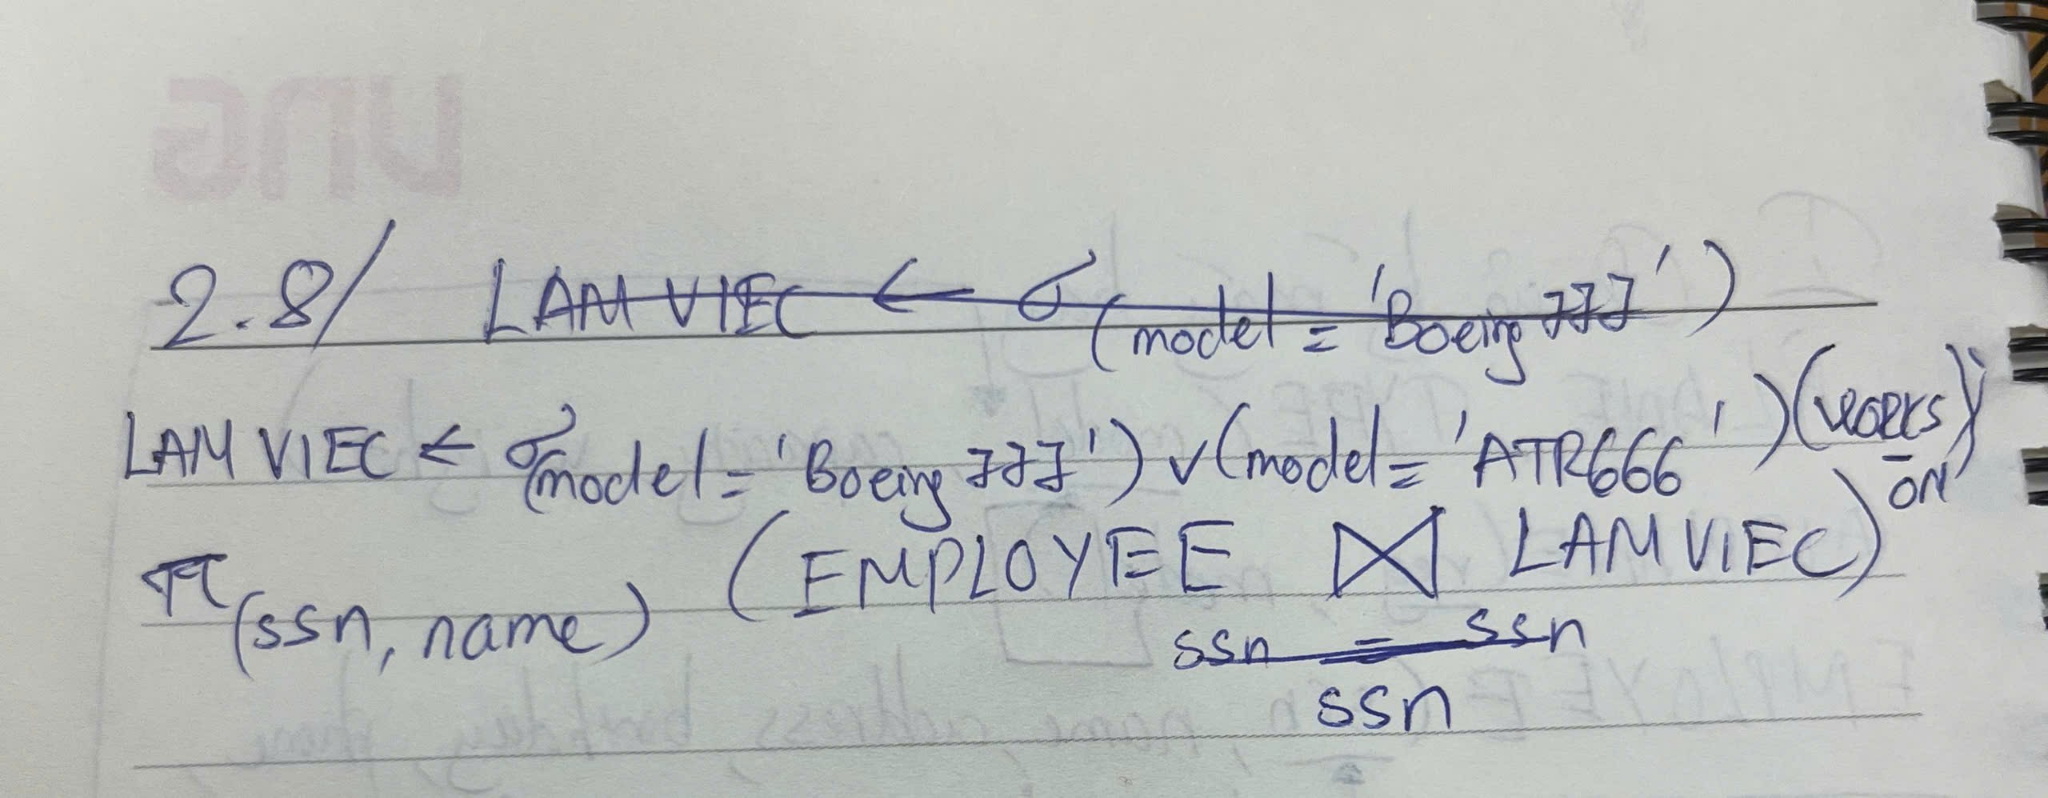 2.8/ LAM VIEC ← σ (model = 'Boeing 777')
LAM VIEC ← σ(model = 'Boeing 777') ∨ (model = 'ATR666') (WORKS_ON)
π (ssn, name) (EMPLOYEE ⋈ LAM VIEC)
ssn = ssn
ssn